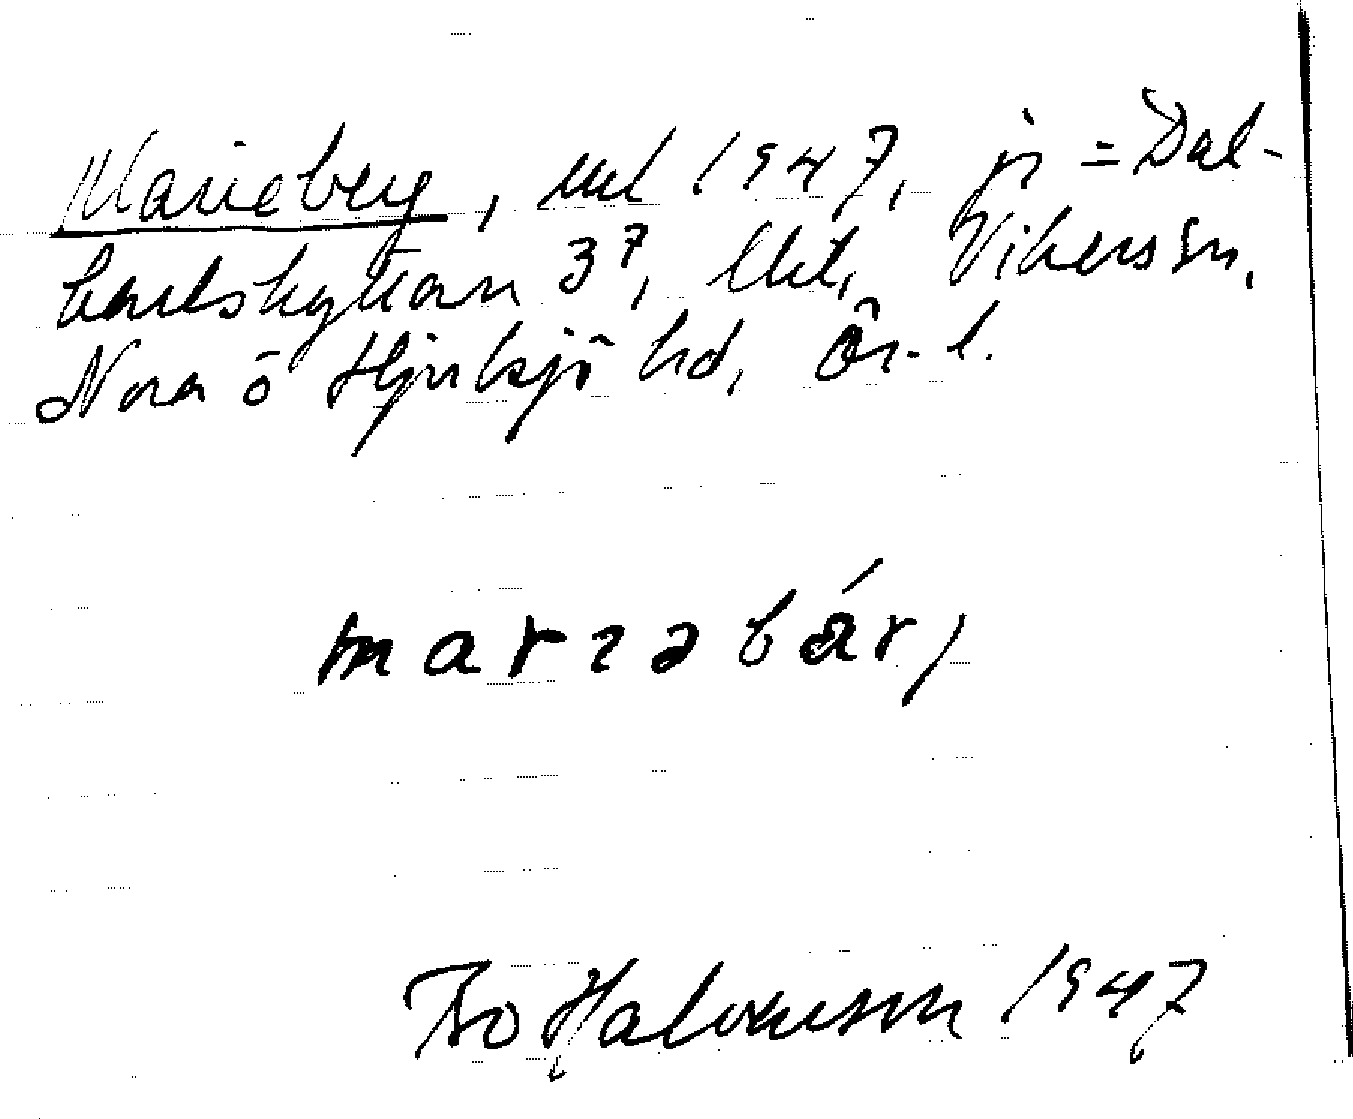 Marieberg, uul 1947, js = Dal-
karlshyttan 3⁷, Ukt, Vikers sn,
Nora ö Hjulsjö hd, Ör. l.
marzəbár,
Bo Halvarsson 1947